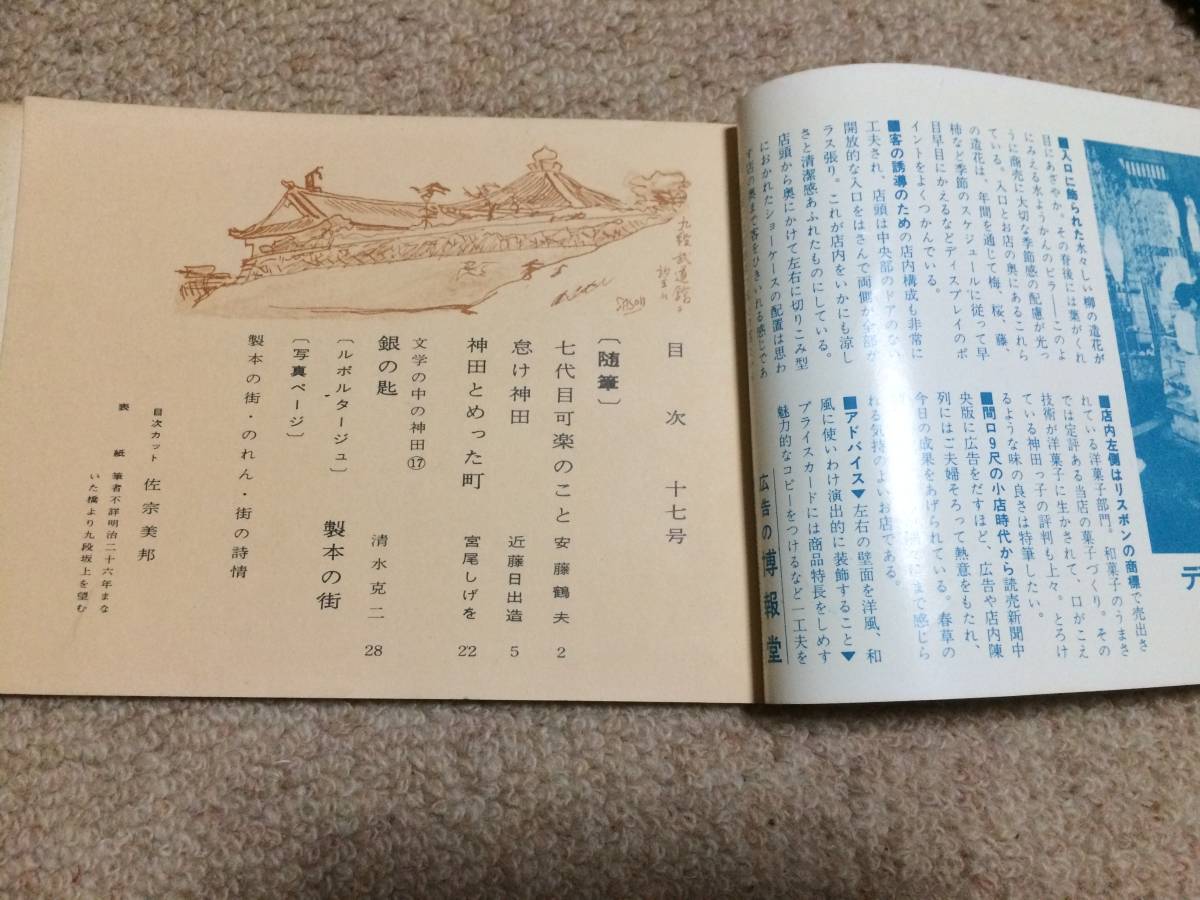 ■入口に飾られた水々しい柳の造花が
目にあざやか。その背後には葉がくれ
にみえる水ようかんのビラ――このよ
うに商売に大切な季節感の配慮が光っ
ている。入口とお店の奥にあるこれら
の造花は、年間を通じて梅、桜、藤、
柿など季節のスケジュールに従って早
目早目にかえるなどディスプレイのポ
イントをよくつかんでいる。
■客の誘導のための店内構成も非常に
工夫され、店頭は中央部のドアのない
開放的な入口をはさんで両側が全部ガ
ラス張り。これが店内をいかにも涼し
さと清潔感あふれたものにしている。
店頭から奥にかけて左右に切りこみ型
におかれたショーケースの配置は思わ
ず店の奥まで客をひきいれる感じであ
■店内左側はリスボンの商標で売出さ
れている洋菓子部門。和菓子のうまさ
では定評ある当店の菓子づくり。その
技術が洋菓子に生かされて、口がこえ
ている神田っ子の評判も上々。とろけ
るような味の良さは特筆したい。
■間口9尺の小店時代から読売新聞中
央版に広告をだすほど、広告や店内陳
列にはご夫婦そろって熱意をもたれ、
今日の成果をあげられている。春草の
まで感じら
れる気持のよいお店である。
■アドバイス▼左右の壁面を洋風、和
風に使いわけ演出的に装飾すること▼
プライスカードには商品特長をしめす
魅力的なコピーをつけるなど一工夫を
広告の博報堂
デ
九段武道館
目次 十七号
〔随筆〕
七代目可楽のこと 安藤鶴夫 2
怠け神田 近藤日出造 5
神田とめった町 宮尾しげを 22
文学の中の神田⑰
銀の匙 清水克二 28
〔ルポルタージュ〕 製本の街
〔写真ページ〕
製本の街・のれん・街の詩情
目次カット 佐宗美邦
表紙 筆者不詳明治二十六年まな
いた橋より九段坂上を望む